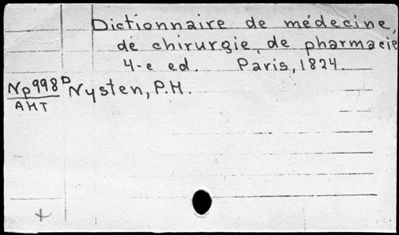 Dictionnaire de médecine,
de chirurgie, de pharmacie
4-e ed. Paris, 1824.
Np998D Nysten, P.H.
AHT
+